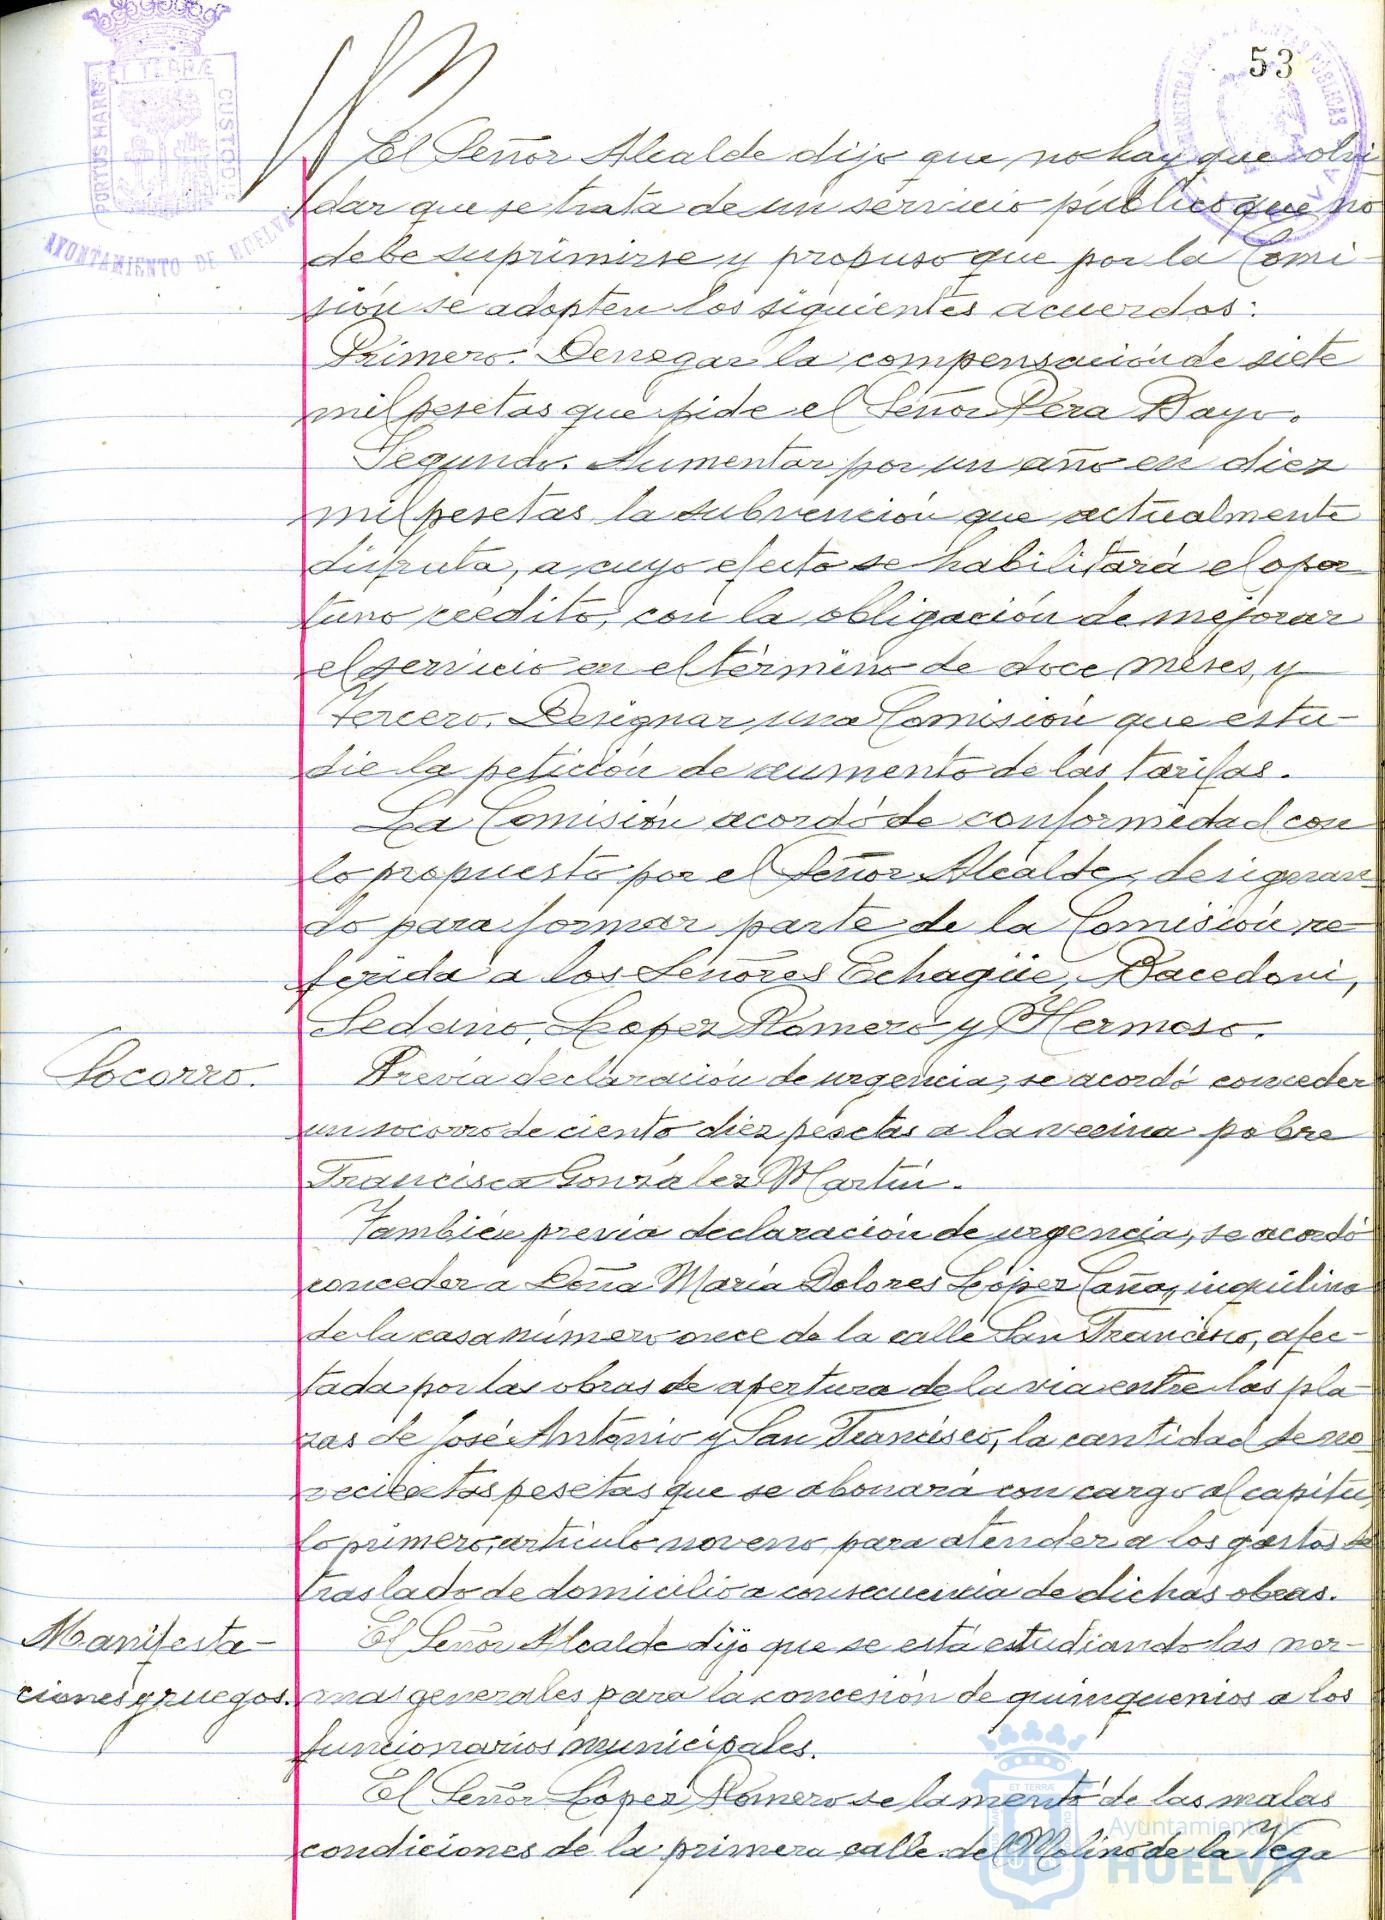 53
PORTUS MARIS ET TERRÆ CUSTODIA
AYUNTAMIENTO DE HUELVA
El Señor Alcalde dijo que no hay que olvi-
dar que se trata de un servicio público que no
debe suprimirse y propuso que por la Comi-
sión se adopten los siguientes acuerdos:
Primero. Denegar la compensación de siete
mil pesetas que pide el Señor Pera Bayo.
Segundo. Aumentar por un año en diez
mil pesetas la subvención que actualmente
disfruta, a cuyo efecto se habilitará el opor-
tuno crédito, con la obligación de mejorar
el servicio en el término de doce meses, y
Tercero. Designar una Comisión que estu-
die la petición de aumento de las tarifas.
La Comisión acordó de conformidad con
lo propuesto por el Señor Alcalde, designan-
do para formar parte de la Comisión re-
ferida a los Señores Echagüe, Bacedoni,
Sedano, Lopez Romero y Hermoso.
Socorro.
Previa declaración de urgencia, se acordó conceder
un socorro de ciento diez pesetas a la vecina pobre
Francisca González Martín.
También previa declaración de urgencia, se acordó
conceder a Doña María Dolores López Caña, inquilina
de la casa número once de la calle San Francisco, afec-
tada por las obras de apertura de la via entre las pla-
zas de José Antonio y San Francisco, la cantidad de no-
vecientas pesetas que se abonará con cargo al capítu-
lo primero, artículo noveno, para atender a los gastos de
traslado de domicilio a consecuencia de dichas obras.
Manifesta-
ciones y ruegos.
El Señor Alcalde dijo que se está estudiando las nor-
mas generales para la concesión de quinquenios a los
funcionarios municipales.
El Señor López Romero se lamentó de las malas
condiciones de la primera calle del Molino de la Vega
Ayuntamiento de
HUELVA